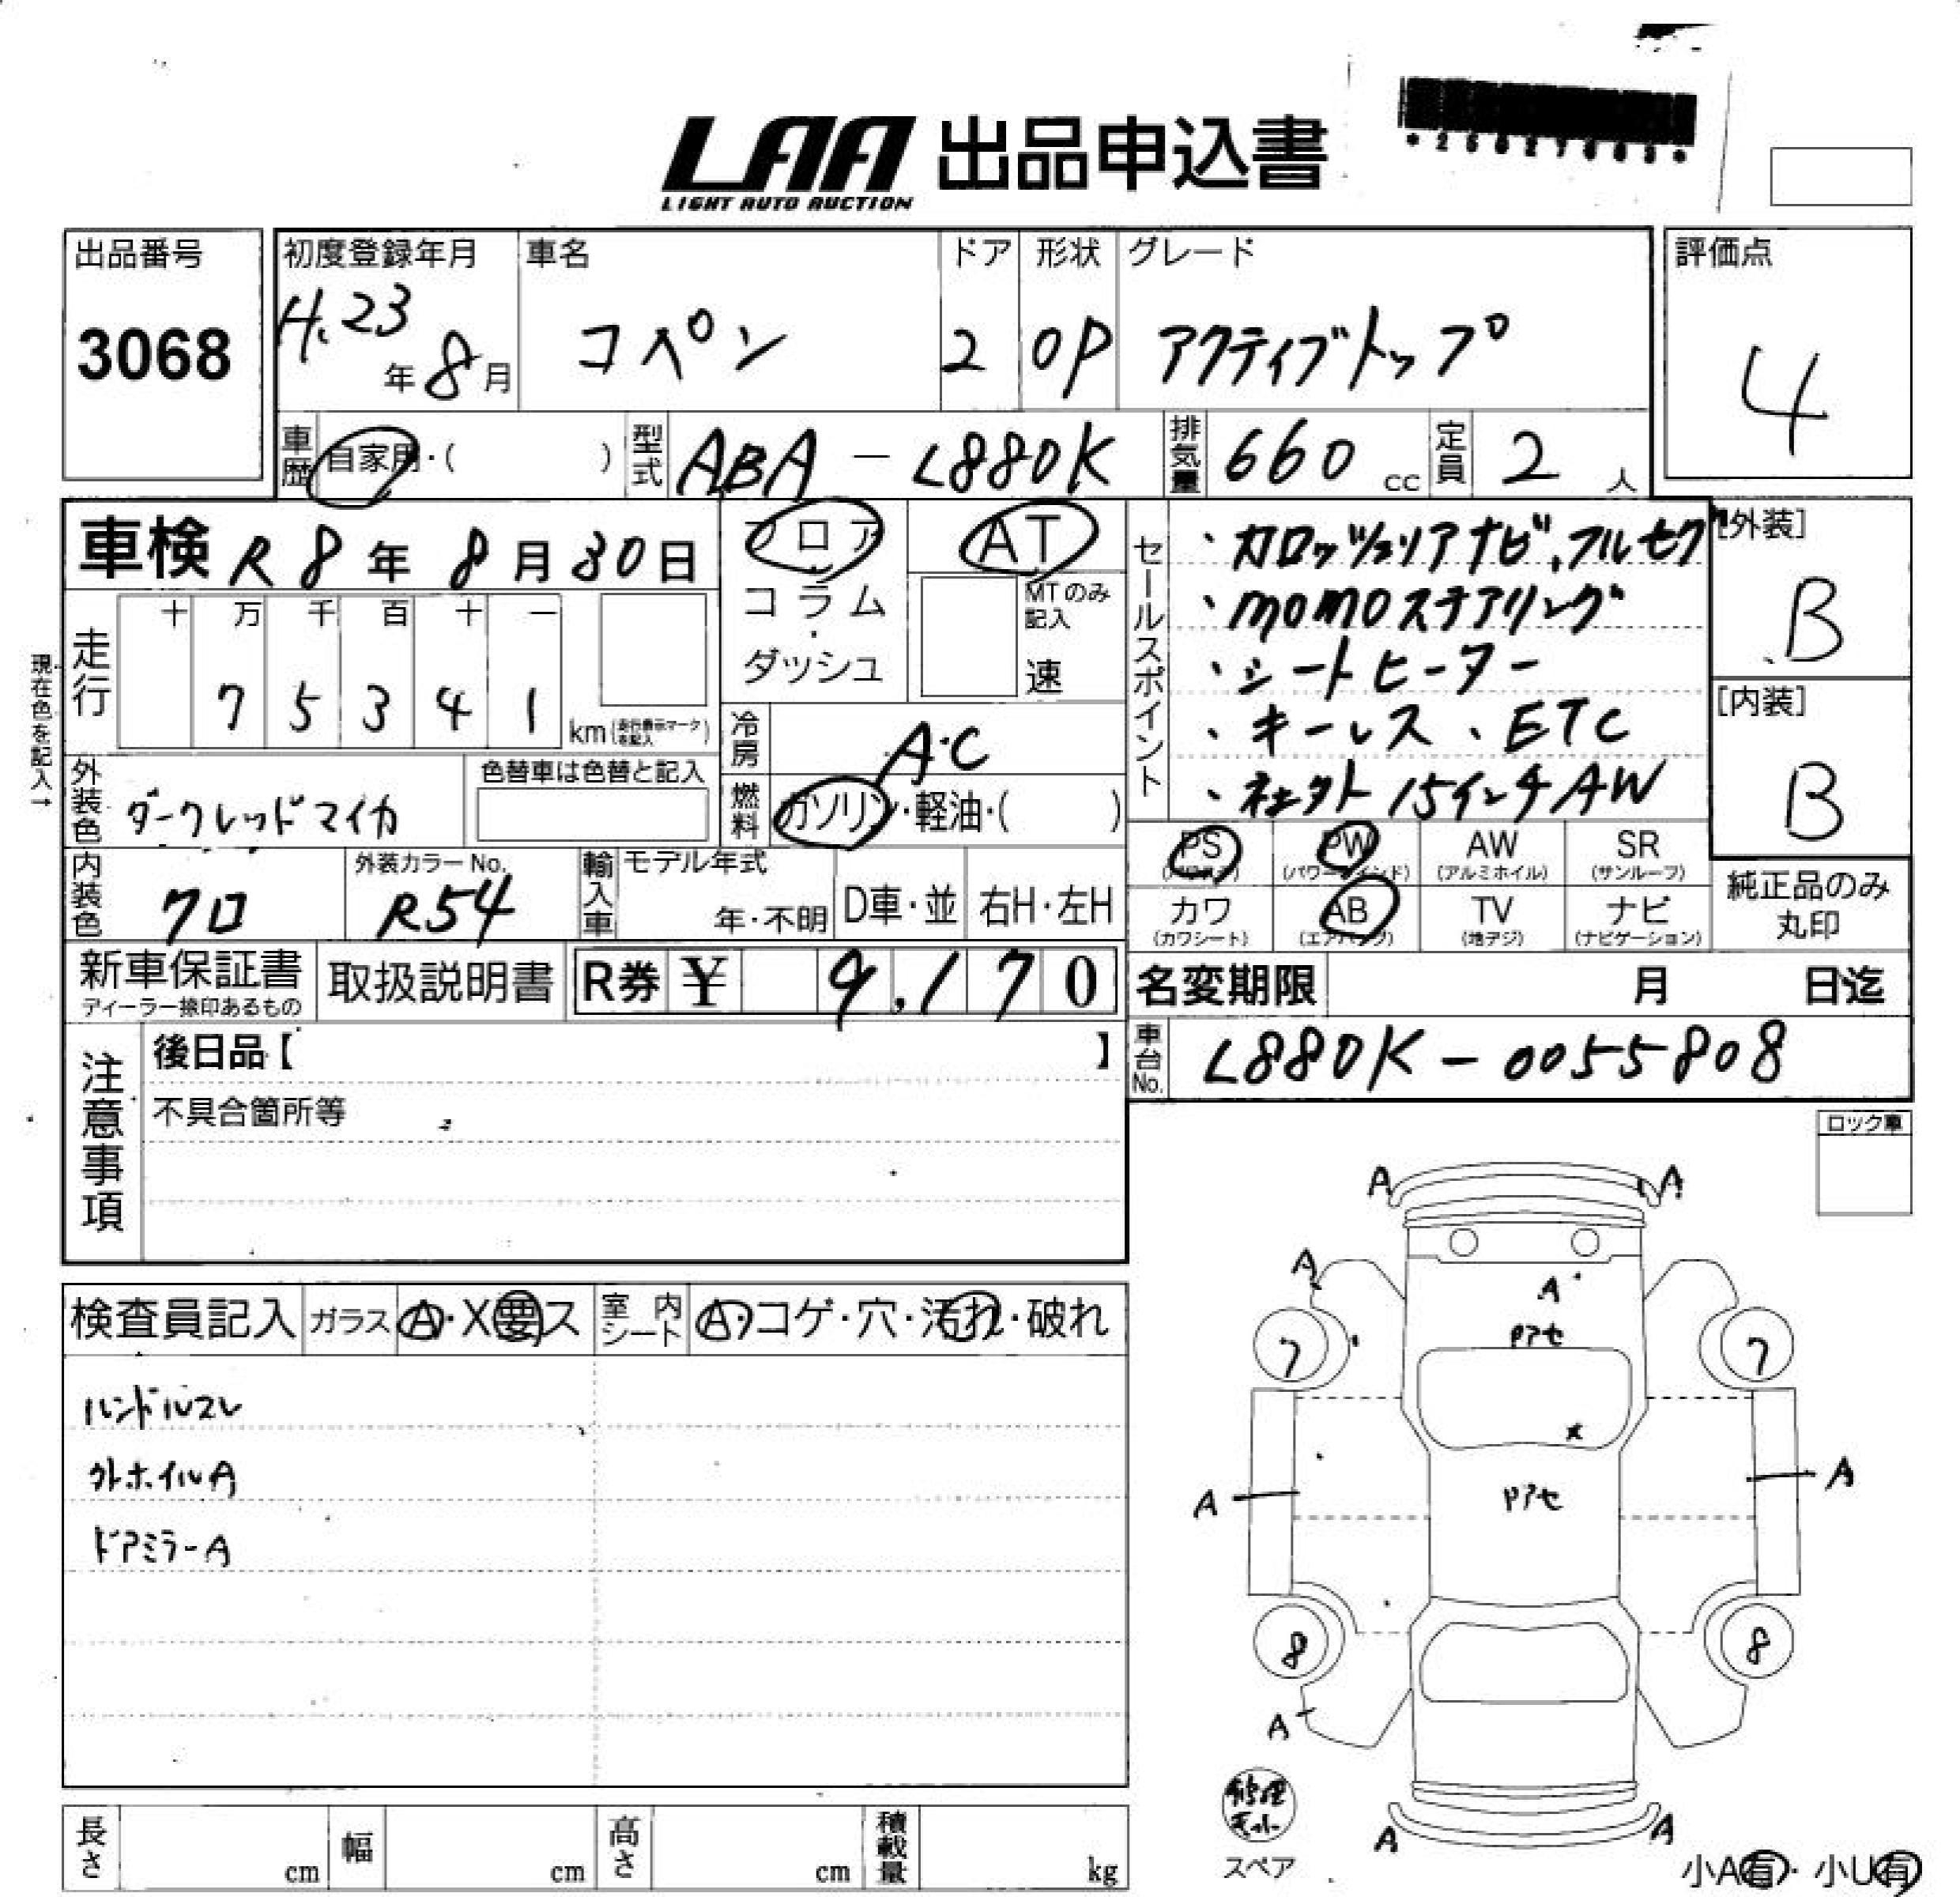 LAA 出品申込書
LIGHT AUTO AUCTION
出品番号
3068
初度登録年月
H.23年8月
車名
コペン
ドア
2
形状
OP
グレード
アクティブトップ
評価点
4
車歴 自家用・( )
型式 ABA-L880K
排気量 660 cc
定員 2 人
車検 R8年8月30日
フロア
コラム
・
ダッシュ
AT
MTのみ記入
速
セールスポイント
・カロッツェリアナビ、フルセグ
・MOMOステアリング
・シートヒーター
・キーレス、ETC
15インチAW
[外装]
B
[内装]
B
現在色を記入→
走行
十 万 千 百 十 一
7 5 3 4 1
km(走行表示マークを記入)
冷房 A・C
燃料 ガソリン・軽油・( )
外装色 ダークレッドマイカ
色替車は色替と記入
PS
PW (パワーウインド)
AW (アルミホイル)
SR (サンルーフ)
カワ (カワシート)
AB (エアバッグ)
TV (地デジ)
ナビ (ナビゲーション)
純正品のみ
丸印
内装色 クロ
外装カラーNo.
R54
輸入車
モデル年式
年・不明
D車・並
右H・左H
新車保証書
ディーラー捺印あるもの
取扱説明書
R券 ¥ 9,170
名変期限 月 日迄
車台No. L880K-0055808
注意事項
後日品【 】
不具合箇所等
ロック車
検査員記入
ガラス A・X要ス
室内シート A・コゲ・穴・汚れ・破れ
ハンドルスレ
外ホイルA
ドアミラーA
A A
A
A
Pアセ
7 7
X
Pアセ
A A
8 8
A
A A
修理キット
スペア
小A有・小U有
長さ cm
幅 cm
高さ cm
積載量 kg